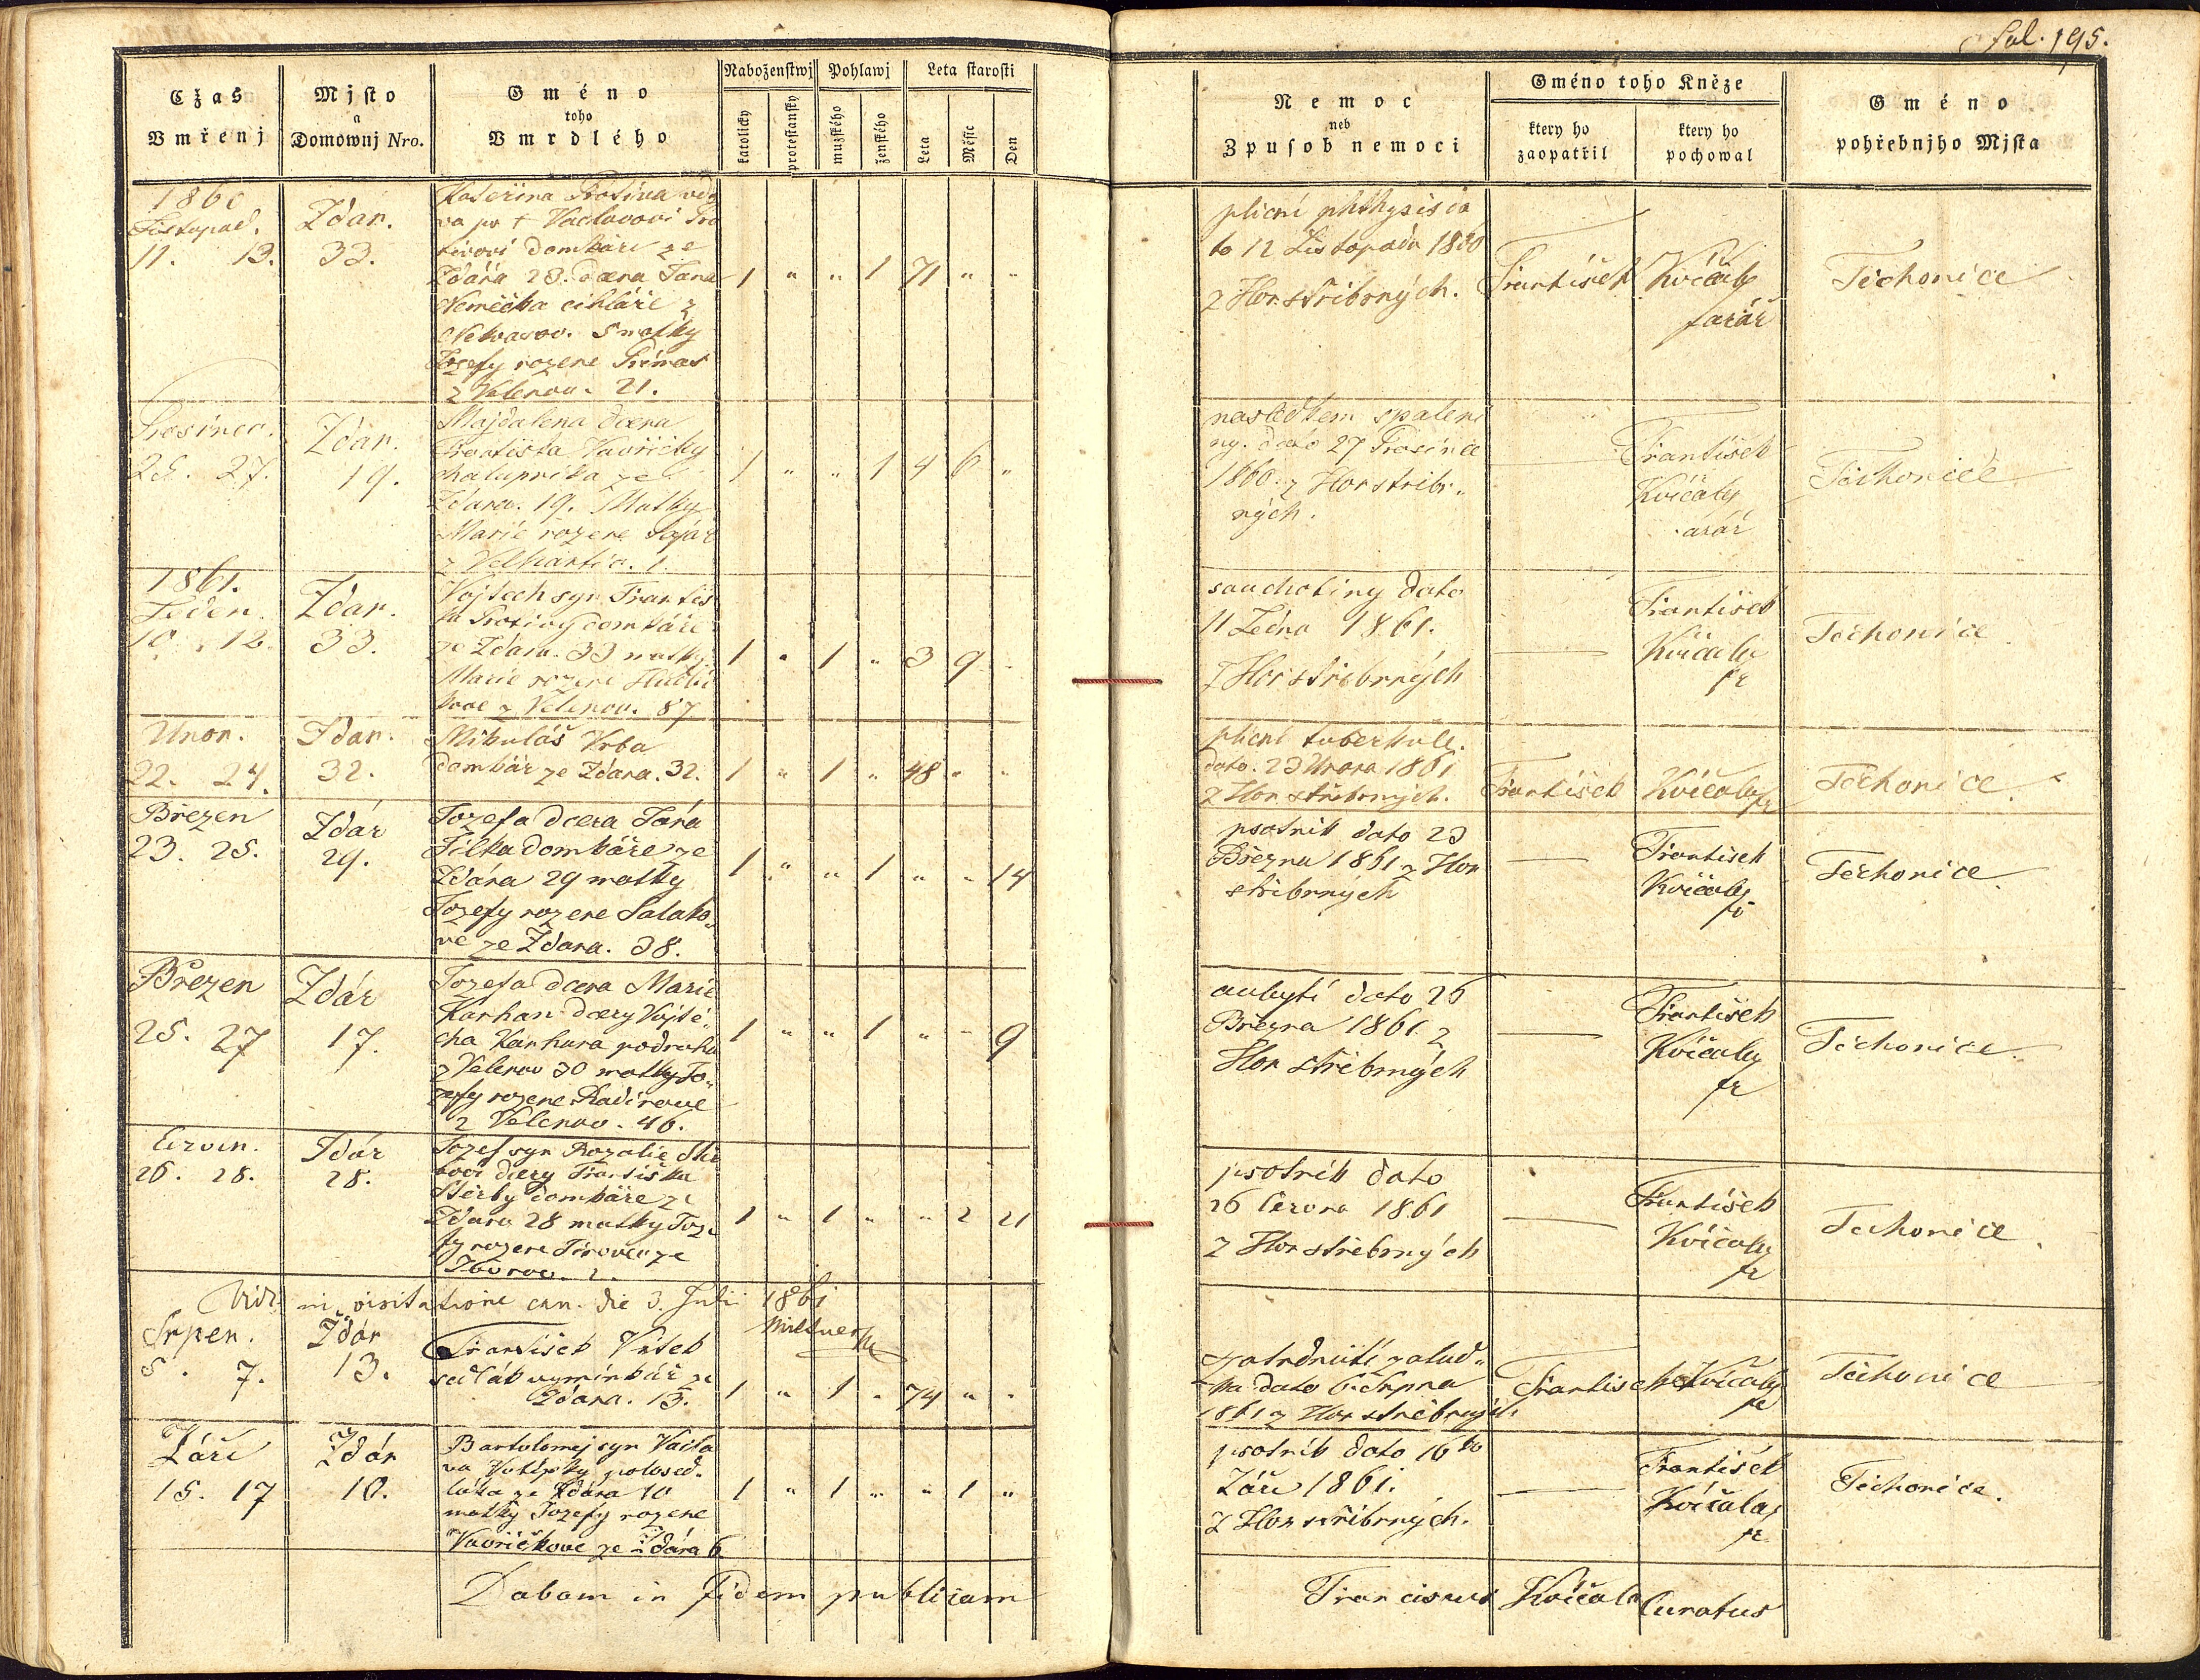 fol. 195.
Cžas
Vmřenj
Mjsto
a
Domownj Nro.
Gméno
toho
Vmrdlého
Naboženstwj
katolicky
protestansky
Pohlawj
muzského
ženského
Leta starosti
Leta
Měsjc
Den
Nemoc
neb
Zpusob nemoci
Gméno toho Kněze
ktery ho
zaopatřil
ktery ho
pochowal
Gméno
pohřebnjho Mjsta
1860
Listopad.
11. 13.
Zdar.
33.
Kateřina Protiva vdo
va po † Vaclavovi Pro
tivovi domkáři ze
Zdára 23. dcera Jana
Němečka cihláře z
S matky
Josefy rozene
z Velenov. 21.
1 " " 1 71 " "
plicní phthysis da
to 12 Listopadu 1860
z Hor stříbrných.
František
Kvíčaly
farář
Těchonice
Prosinec.
25. 27.
Zdar.
19.
Majdalena dcera
Františka Vavřičky
chalupníka ze
Zdara. 19. Matky
Marie rozene
z Velhartic. 1.
1 " " 1 4 6 "
nasledkem spaleni
ny. dato 27 Prosince
1860. z Hor stribr„
ných.
František
Kvíčaly
farář
Těchonice
1861.
Leden.
10. 12.
Zdar.
33.
Vojtech syn Františ
ka Protivy domkáře
ze Zdara. 33 matky
Marie rozene
z Velenov. 87
1 " 1 " 3 9 "
souchotiny dato
11 Ledna 1861.
z Hor stribrných
František
Kvíčaly
fr
Těchonice
Unor.
22. 24.
Zdar.
32.
Mikuláš Vrba
domkář ze Zdara. 32.
1 " 1 " 48 " "
plicní tuberkule.
dato. 23 Unora 1861
z Hor stříbrných.
František
Kvíčaly fr
Těchonice.
Březen
23. 25.
Zdár
29.
Jozefa dcera Jana
Jílka domkáře ze
Zdára 29 matky
Jozefy rozene Salako
vé ze Zdara. 38.
1 " " 1 " " 14
psotnik dato 23
Března 1861 z Hor
stříbrných
František
Kvíčaly
fr
Těchonice.
Březen
25. 27
Zdár
17.
Jozefa dcera Marie
Karhan dcery Vojtě„
cha Karhana podruha
z Velenov 30 matky Jo„
zefy rozene
z Velenov. 46.
1 " " 1 " " 9
aubytí dato 26
Března 1861 z
Hor stříbrných
František
Kvíčaly
fr
Těchonice.
Červn.
26. 28.
Zdár
28.
Jozef syn Rozalie
dcery Františka
Štěrby domkáře ze
Zdara 28 matky Joze
fy rozene
1 " 1 " " 2 21
psotník dato
26 Června 1861
z Hor stříbrných
František
Kvíčaly
fr
Těchonice.
Vidi in visitatione can. die 3. Julii 1861
Srpen.
5. 7.
Zdár
13.
František Vítek
sedlák výminkář ze
Zdara. 13.
1 " 1 " 74 " "
zatvrdnutí žalud„
ka dato 6. Srpna
1861 z Hor stříbrných
František
Kvíčaly
fr
Těchonice
Září
15. 17
Zdár
10.
Bartolomej syn Vacla
va Votípky polosed„
láka ze Zdára 10
matky Jozefy rozene
Vavřičkové ze Zdára 6
1 " 1 " " 1 "
psotník dato 16ho
Září 1861.
z Hor stříbrných.
František
Kvíčala,
fr.
Těchonice.
Dabam in fidem publicam
Franciscus Kvíčala Curatus